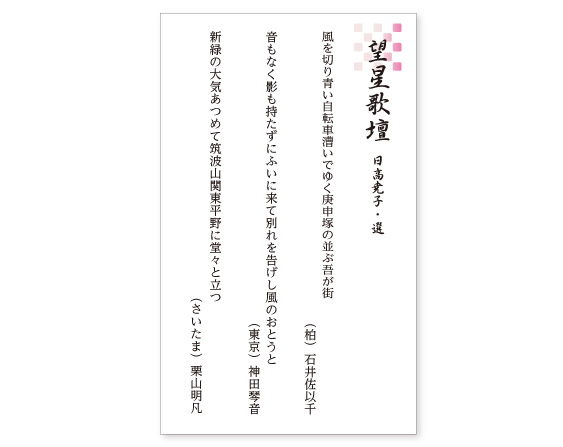 望星歌壇 日高堯子・選
風を切り青い自転車漕いでゆく庚申塚の並ぶ吾が街
（柏）石井佐以千
音もなく影も持たずにふいに来て別れを告げし風のおとうと
（東京）神田琴音
新緑の大気あつめて筑波山関東平野に堂々と立つ
（さいたま）栗山明凡